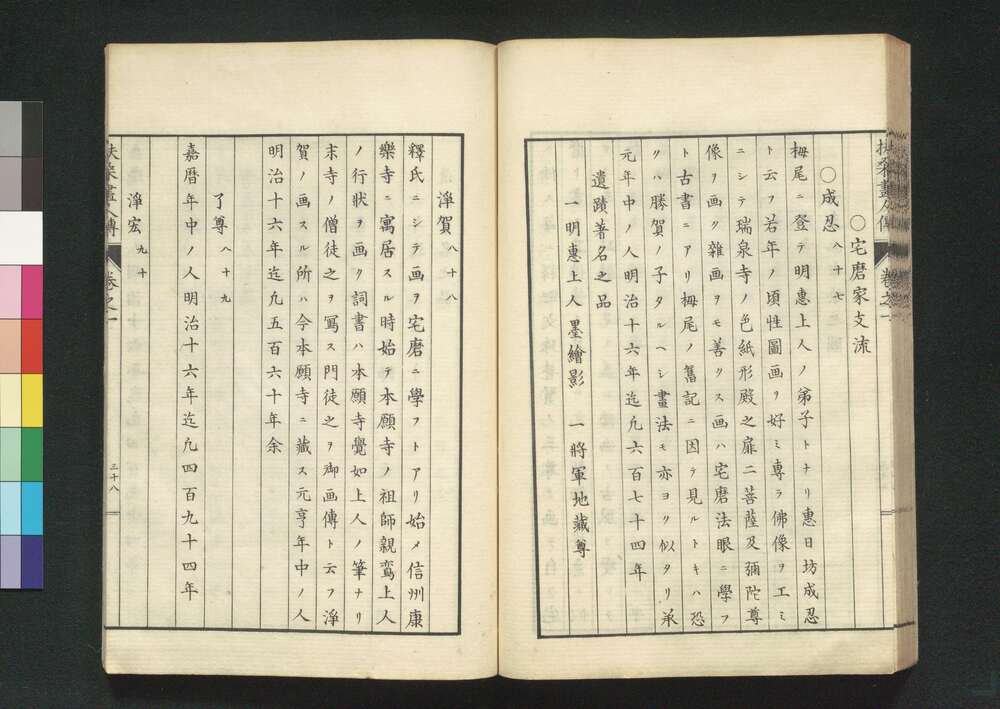 扶桑畫人傳
卷之一
○宅磨家支流
○成忍 八十七
栂尾ニ登テ明惠上人ノ弟子トナリ惠日坊成忍
ト云フ若年ノ頃性圖画ヲ好ミ專ラ佛像ヲエミ
ニシテ瑞泉寺ノ色紙形殿之扉二菩薩及彌陀尊
像ヲ画ク雜画ヲモ善クス画ハ宅磨法眼ニ學フ
ト古書ニアリ栂尾ノ舊記ニ因テ見ルトキハ恐
クハ勝賀ノ子タルヘシ畫法モ亦ヨク似タリ承
元年中ノ人明治十六年迄凡六百七十四年
遺蹟著名之品
一明惠上人 墨繪影 一將軍地藏尊
淨賀 八十八
釋氏ニシテ画ヲ宅磨ニ學フトアリ始メ信州康
樂寺ニ寓居スル時始テ本願寺ノ祖師親鸞上人
ノ行狀ヲ画ク詞書ハ本願寺覺如上人ノ筆ナリ
末寺ノ僧徒之ヲ寫ス門徒之ヲ御画傳ト云フ淨
賀ノ画スル所ハ今本願寺ニ藏ス元亨年中ノ人
明治十六年迄凡五百六十年余
了尊 八十九
嘉曆年中ノ人明治十六年迄凡四百九十四年
淨宏 九十
扶桑畫人傳
卷之一
三十八